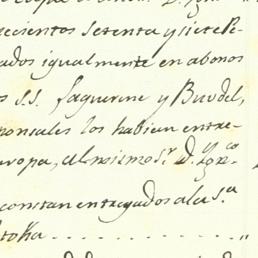 ecientos setenta y siete Pe-
ados igualmente en abonos
s S.S. Faguerine y Burdel,
ponsales los habian entre-
uropa, al mismo Sr. D. Ygn.co
constan entregados a la S.a